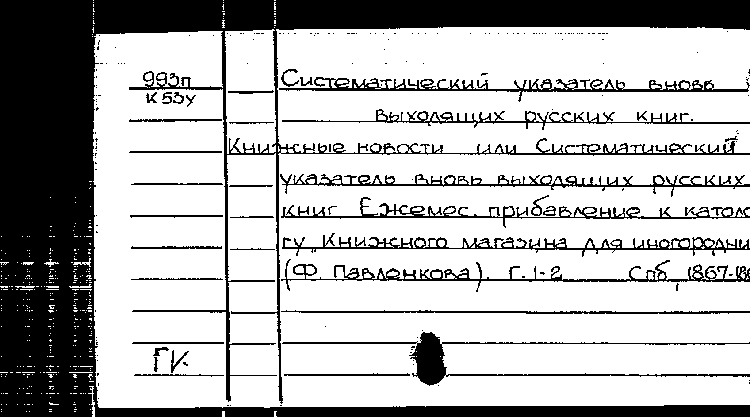 993п Систематический указатель вновь
К 53у выходящих русских книг.
Книжные новости или Систематический
указатель вновь выходящих русских
книг Ежемес. прибавление к катало
гу „Книжного магазина для иногородни
(Ф Павленкова). Г. 1-2 Спб, 1867-186
ГК